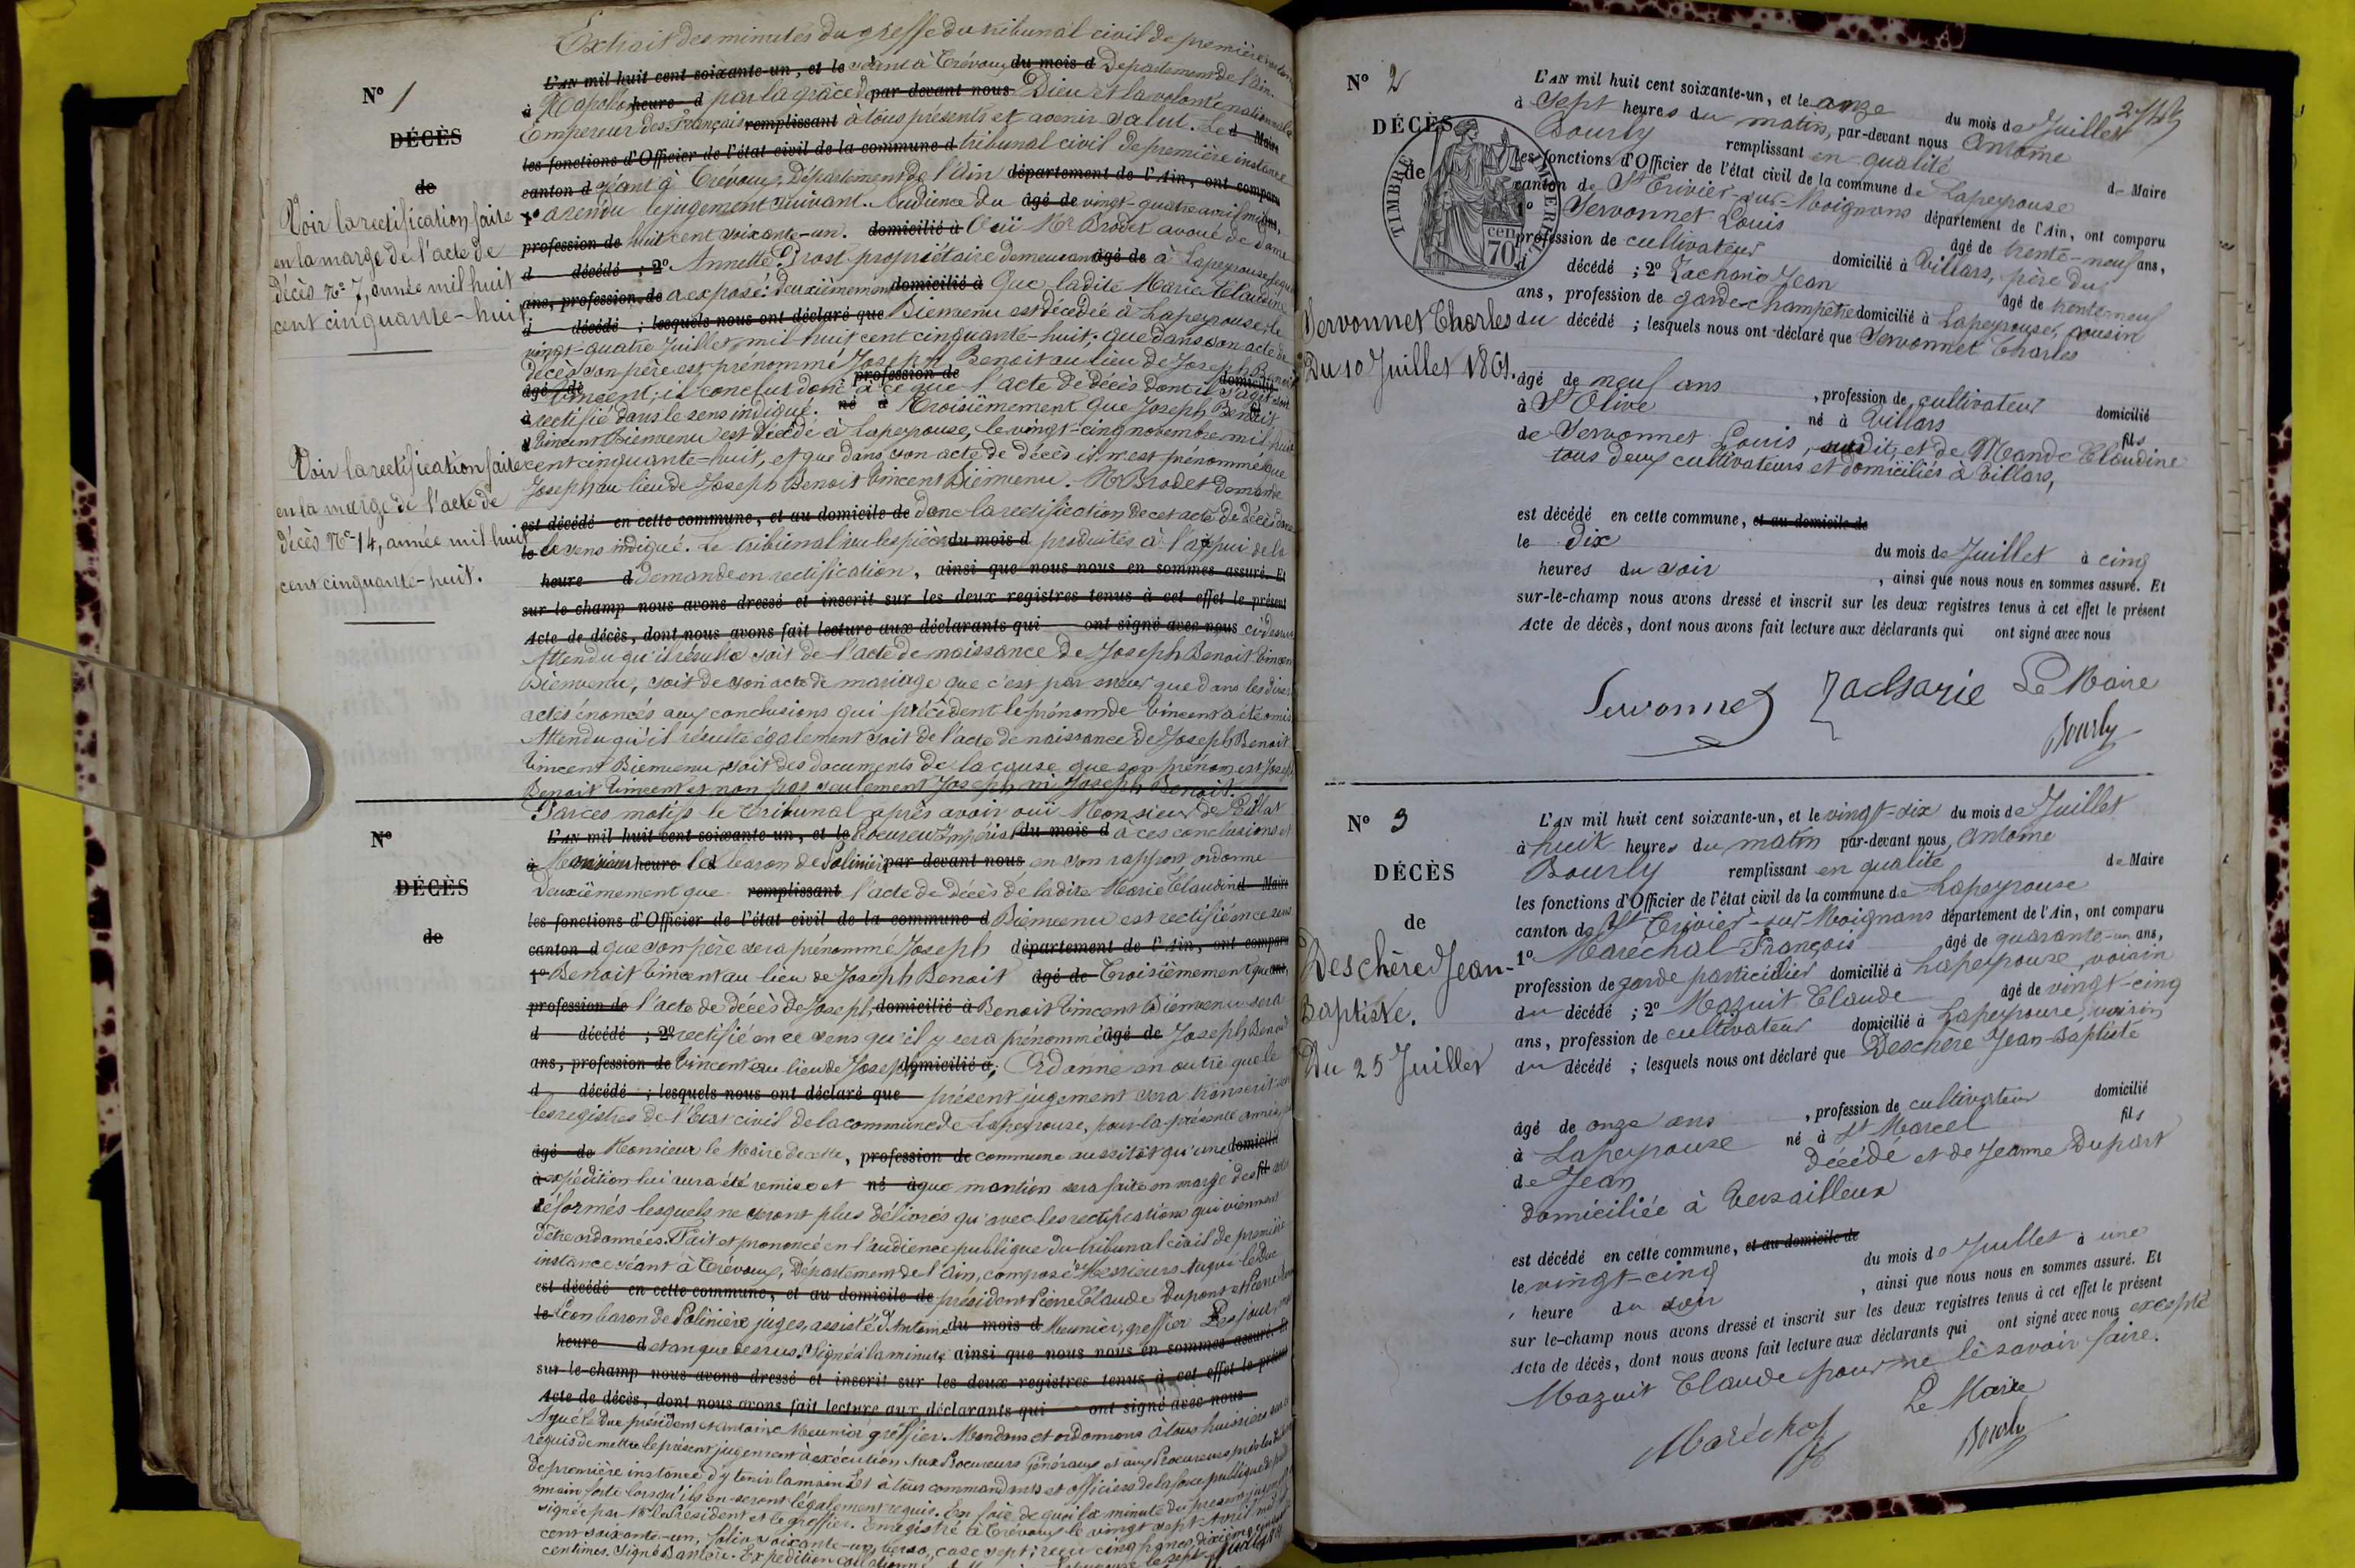 Extrait des minutes du greffe du tribunal civil de première
L'AN mil huit cent soixante-un, et le séant à Trévoux du mois d Département de l'Ain.
N° 1
à Napoléon heure d par la grâce de par-devant nous Dieu et la volonté nationale
Empereur des Français remplissant à tous présents et avenir Salut. Le d Maire
DÉCÈS
les fonctions d'Officier de l'état civil de la commune d tribunal civil de première instance
de
canton d séant à Trévoux, Département de l'Ain département de l'Ain, ont comparu
1° a rendu le jugement suivant. Audience du âgé de vingt-quatre avril mil ans,
profession de huit cent soixante-un. domicilié à Ouï Me Brodet avoué de dame
d décédé ; 2° Annette Prost propriétaire demeurant âgé de à Lapeyrouse
ans, profession de a exposé: deuxièmement domicilié à Que ladite Marie Claudine
d décédé ; lesquels nous ont déclaré que Bienvenu est décédée à Lapeyrouse, le
vingt-quatre Juillet mil huit cent cinquante-huit; que dans son acte de
décès son père est prénommé Joseph Benoit au lieu de Joseph Benoit
âgé de Vincent; il conclut donc profession de à ce que l'acte de décès dont il s'agit soit domicilié
à rectifié dans le sens indiqué. né à Troisièmement Que Joseph Benoit
Vincent Bienvenu est décédé à Lapeyrouse, le vingt-cinq novembre mil huit
cent cinquante-huit, et que dans son acte de décès il n'est prénommé que
Joseph au lieu de Joseph Benoit Vincent Bienvenu. Me Brodet demande
est décédé en cette commune, et au domicile de donc la rectification de cet acte de décès dans
le le sens indiqué. Le tribunal vu les pièces du mois d produites à l'appui de la
heure d demande en rectification, ainsi que nous nous en sommes assuré. Et
sur-le-champ nous avons dressé et inscrit sur les deux registres tenus à cet effet le présent
Acte de décès, dont nous avons fait lecture aux déclarants qui ont signé avec nous ci-dessus
Attendu qu'il résulte soit de l'acte de naissance de Joseph Benoit Vincent
Bienvenu, soit de son acte de mariage que c'est par erreur que dans les divers
actes énoncés aux conclusions qui précèdent le prénom de Vincent a été omis
Attendu qu'il résulte également soit de l'acte de naissance de Joseph Benoit
Vincent Bienvenu, soit des documents de la cause que son prénom est Joseph
Benoit Vincent et non pas seulement Joseph ni Joseph Benoit.
Voir la rectification faite
en la marge de l'acte de
décès N° 7, année mil huit
cent cinquante-huit
Voir la rectification faite
en la marge de l'acte de
décès N° 14, année mil huit
cent cinquante-huit.
Par ces motifs le Tribunal après avoir ouï Monsieur de
N°
L'AN mil huit cent soixante-un, et le Procureur Impérial du mois d à ces conclusions et
à Monsieur heure d Léon baron de Polinière par-devant nous en son rapport ordonne
DÉCÈS
Deuxièmement que remplissant l'acte de décès de ladite Marie Claudine d Maire
les fonctions d'Officier de l'état civil de la commune d Bienvenu est rectifié en ce sens
de
canton d que son père sera prénommé Joseph département de l'Ain, ont comparu
1° Benoit Vincent au lieu de Joseph Benoit âgé de Troisièmement que ans,
profession de l'acte de décès de Joseph domicilié à Benoit Vincent Bienvenu sera
d décédé ; 2° rectifié en ce sens qu'il y sera prénommé âgé de Joseph Benoit
ans, profession de Vincent au lieu de Joseph domicilié à; Ordonne en outre que le
d décédé ; lesquels nous ont déclaré que présent jugement sera transcrit sur
les registres de l'Etat civil de la commune de Lapeyrouse, pour la présente année,
âgé de Monsieur le Maire de cette, profession de commune aussitôt qu'une domicilié
à expédition lui aura été remise et né à que mention sera faite en marge des fil actes
réformés lesquels ne seront plus délivrés qu'avec les rectifications qui viennent
d'être ordonnées. Fait et prononcé en l'audience publique du tribunal civil de première
instance séant à Trévoux, Département de l'Ain, composé de Messieurs
est décédé en cette commune, et au domicile de président Pierre Claude Dupont et
le Léon baron de Polinière juges, assisté d'Antoine du mois d Meunier, greffier Les jour, mois
heure d et an que dessus. Signé à la minute ainsi que nous nous en sommes assuré. Et
sur-le-champ nous avons dressé et inscrit sur les deux registres tenus à cet effet le présent
Acte de décès, dont nous avons fait lecture aux déclarants qui ont signé avec nous
président et Antoine Meunier greffier. Mandons et ordonnons à tous huissiers sur ce
requis de mettre le présent jugement à exécution Aux Procureurs Généraux et aux Procureurs près les
de première instance d'y tenir la main Et à tous commandants et officiers de la force publique de prêter
main forte lorsqu'ils en seront légalement requis. En foi de quoi la minute du présent jugement
signée par Mr le Président et le greffier. Enregistré à Trévoux le vingt-sept Avril mil huit
cent soixante-un, folio soixante-un, verso, case sept; reçu cinq francs, dixième
centimes. Signé
N° 2
L'AN mil huit cent soixante-un, et le onze du mois de Juillet
à Sept heures du matin, par-devant nous Antoine
DÉCÈS
Bourly remplissant en qualité de Maire
de
les fonctions d'Officier de l'état civil de la commune de Lapeyrouse
TIMBRE IMPÉRIAL
70 cen
canton de St Trivier-sur-Moignans département de l'Ain, ont comparu
1° Servonnet Louis âgé de trente-neuf ans,
profession de cultivateur domicilié à Villars, père du
d décédé ; 2° Zacharie Jean âgé de trente neuf
ans, profession de garde-champêtre domicilié à Lapeyrouse, cousin
du décédé ; lesquels nous ont déclaré que Servonnet Charles
Servonnet Charles
Du 10 Juillet 1861.
âgé de neuf ans, profession de cultivateur domicilié
à St Olive né à Villars fils
de Servonnet Louis, susdit, et de Mande Claudine
tous deux cultivateurs et domiciliés à Villars,
est décédé en cette commune, et au domicile de
le Dix du mois de Juillet à cinq
heures du soir, ainsi que nous nous en sommes assuré. Et
sur-le-champ nous avons dressé et inscrit sur les deux registres tenus à cet effet le présent
Acte de décès, dont nous avons fait lecture aux déclarants qui ont signé avec nous
Servonnet Zacharie Le Maire
Bourly
N° 3
L'AN mil huit cent soixante-un, et le vingt-six du mois de Juillet
à huit heures du matin par-devant nous Antoine
DÉCÈS
Bourly remplissant en qualité de Maire
les fonctions d'Officier de l'état civil de la commune de Lapeyrouse
de
canton de St Trivier-sur-Moignans département de l'Ain, ont comparu
1° Maréchal François âgé de quarante-un ans,
Deschère Jean-
Baptiste.
Du 25 Juillet
profession de garde particulier domicilié à Lapeyrouse, voisin
du décédé ; 2° Mazuit Claude âgé de vingt-cinq
ans, profession de cultivateur domicilié à Lapeyrouse, voisin
du décédé ; lesquels nous ont déclaré que Deschère Jean-Baptiste
âgé de onze ans, profession de cultivateur domicilié
à Lapeyrouse né à St Marcel fils
de Jean décédé et de Jeanne Dupart
domiciliée à Versailleux
est décédé en cette commune, et au domicile de
le vingt-cinq du mois de Juillet à une
heure du soir, ainsi que nous nous en sommes assuré. Et
sur le-champ nous avons dressé et inscrit sur les deux registres tenus à cet effet le présent
Acte de décès, dont nous avons fait lecture aux déclarants qui ont signé avec nous excepté
Mazuit Claude pour ne le savoir faire.
Maréchal Le Maire
Bourly